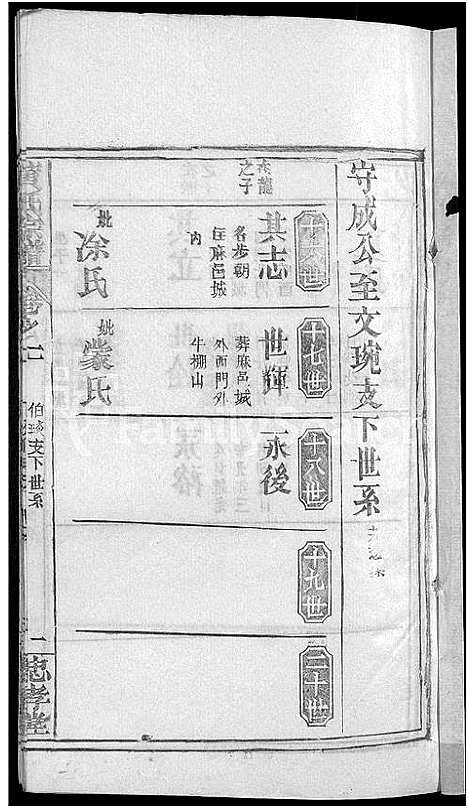 守成公至文琬支下世系
十六世
十七世
十八世
十九世
二十世
之子
其志
名步朝
住麻邑城
內
妣涂氏
世輝
葬麻邑城
外西門外
牛棚山
妣蒙氏
永後
卷之二
伯琦支下世系
二
忠孝堂